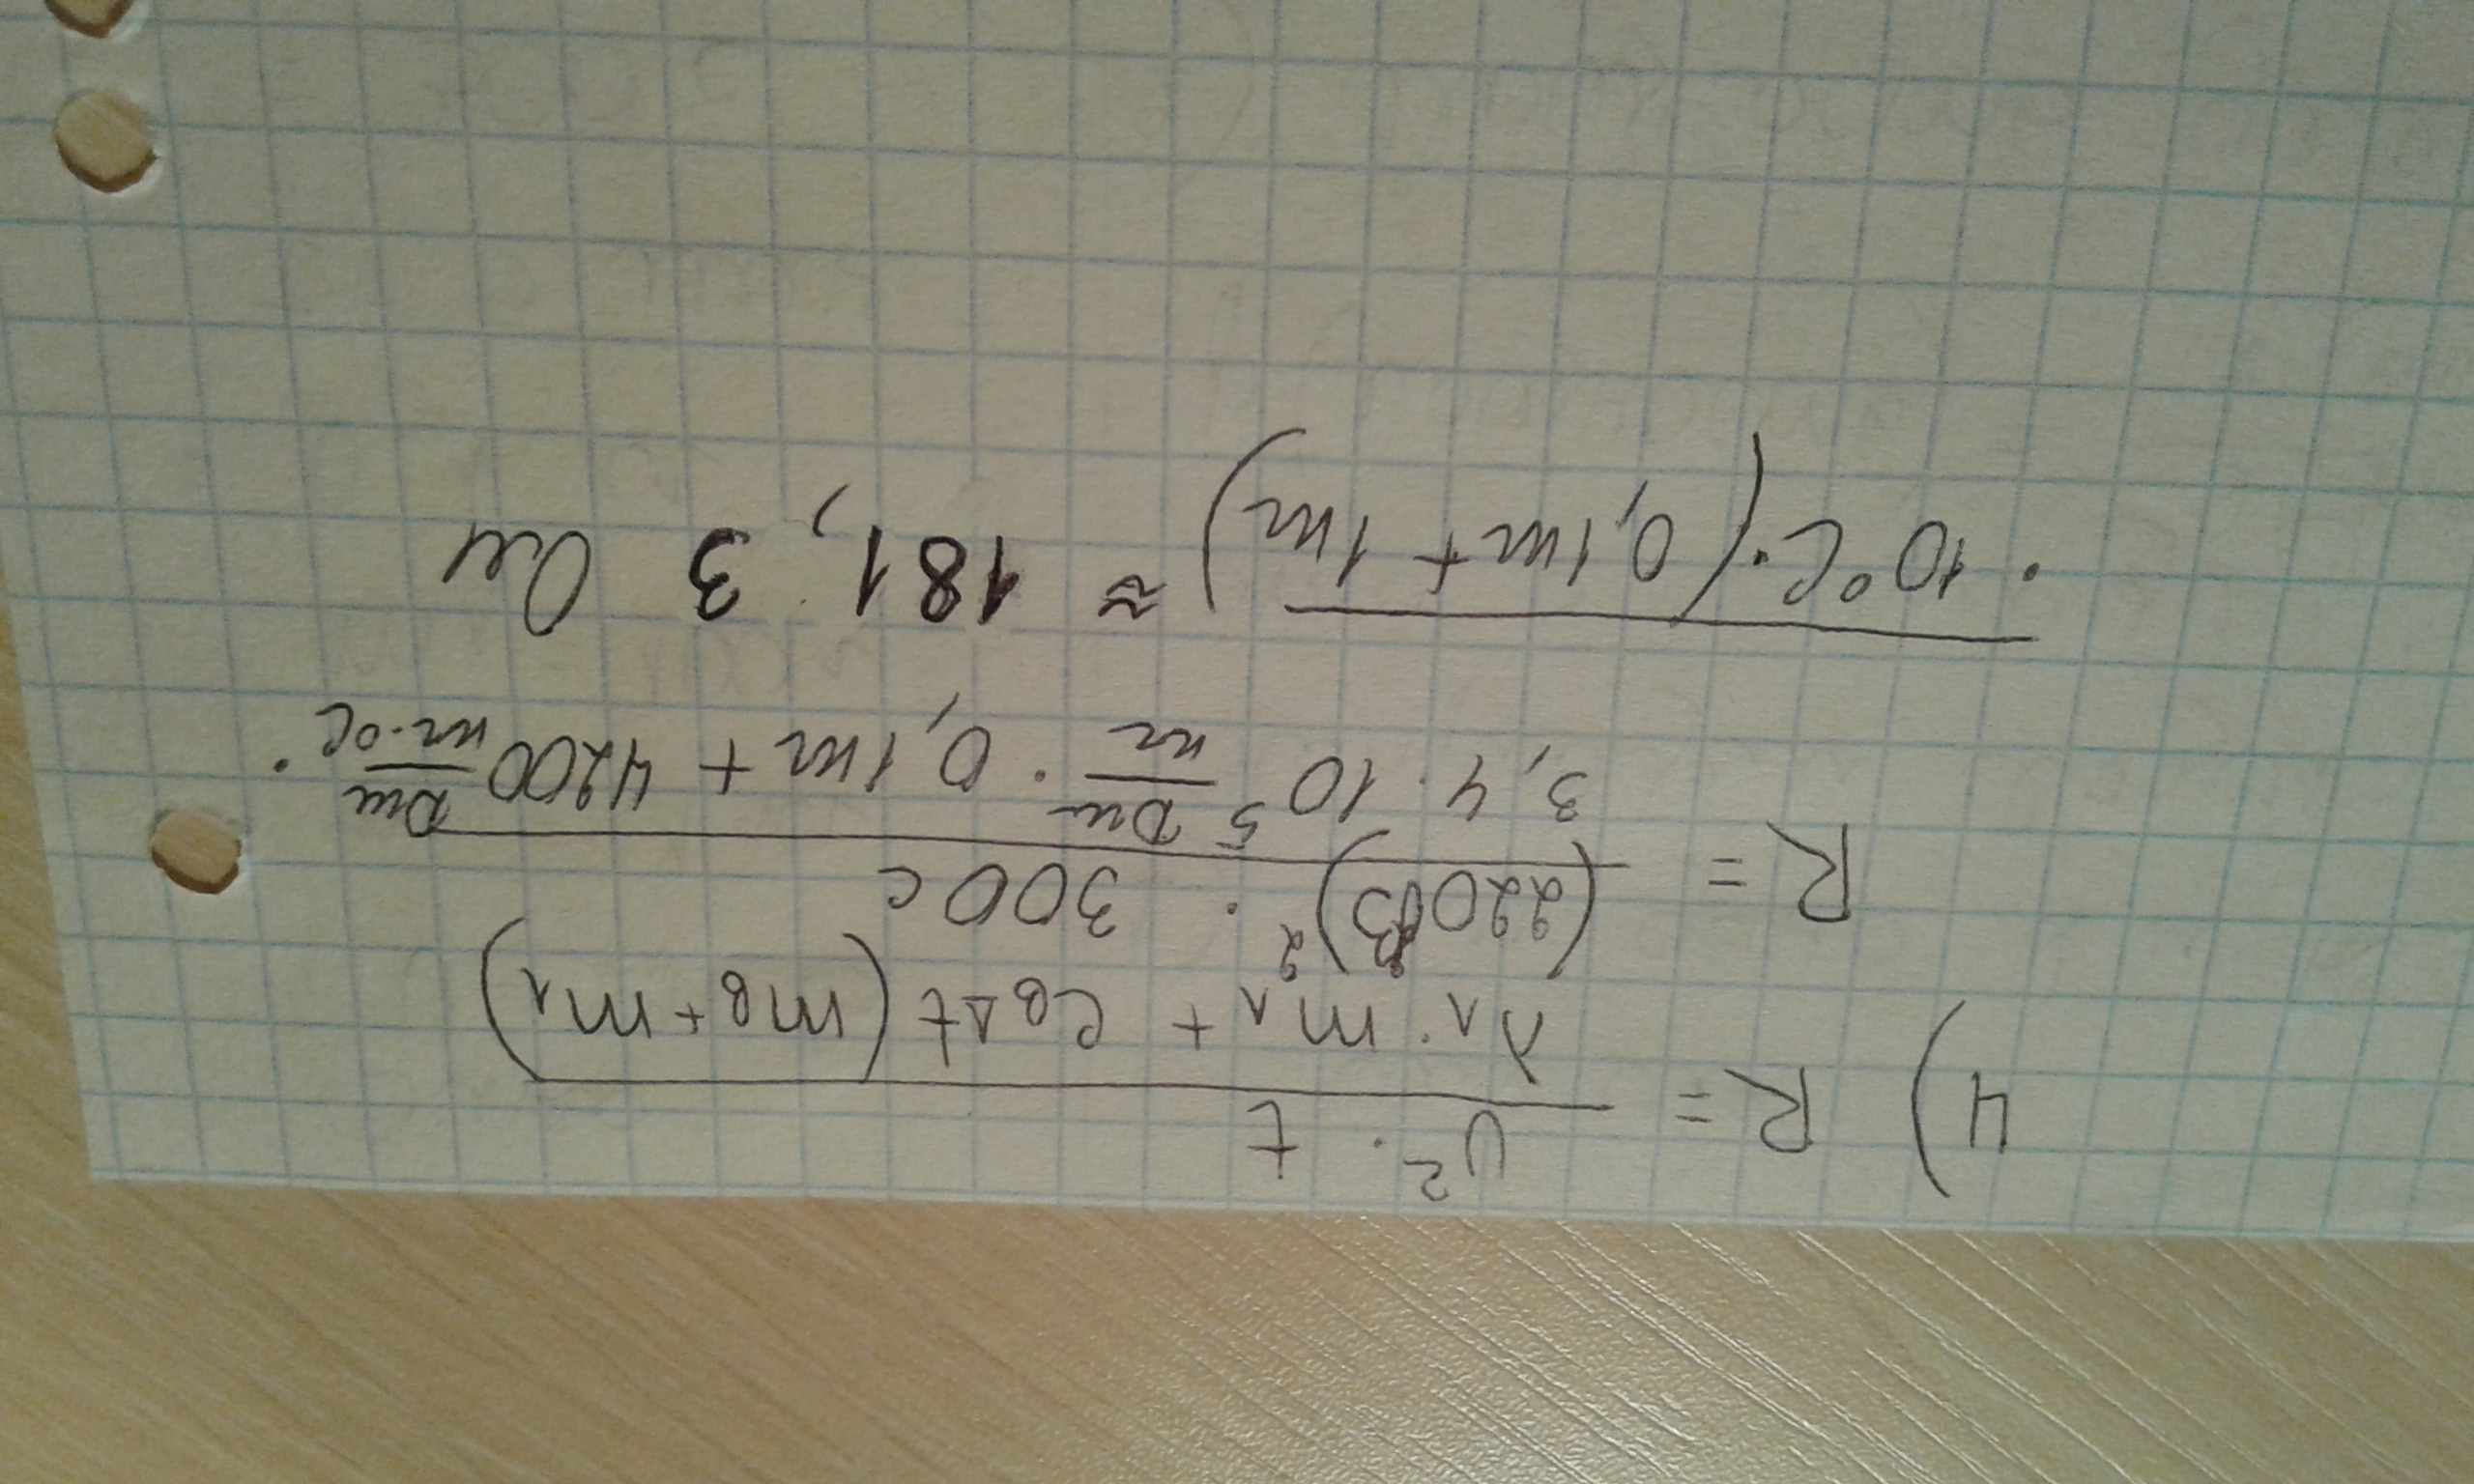 4) R = U² · t
λ₁ · m₁ + Cв Δt (mв + m₁)
R = (220В)² · 300с
3,4 · 10⁵ Дж/кг · 0,1кг + 4200 Дж/кг·°C ·
· 10°C · (0,1кг + 1кг) ≈ 181,3 Ом